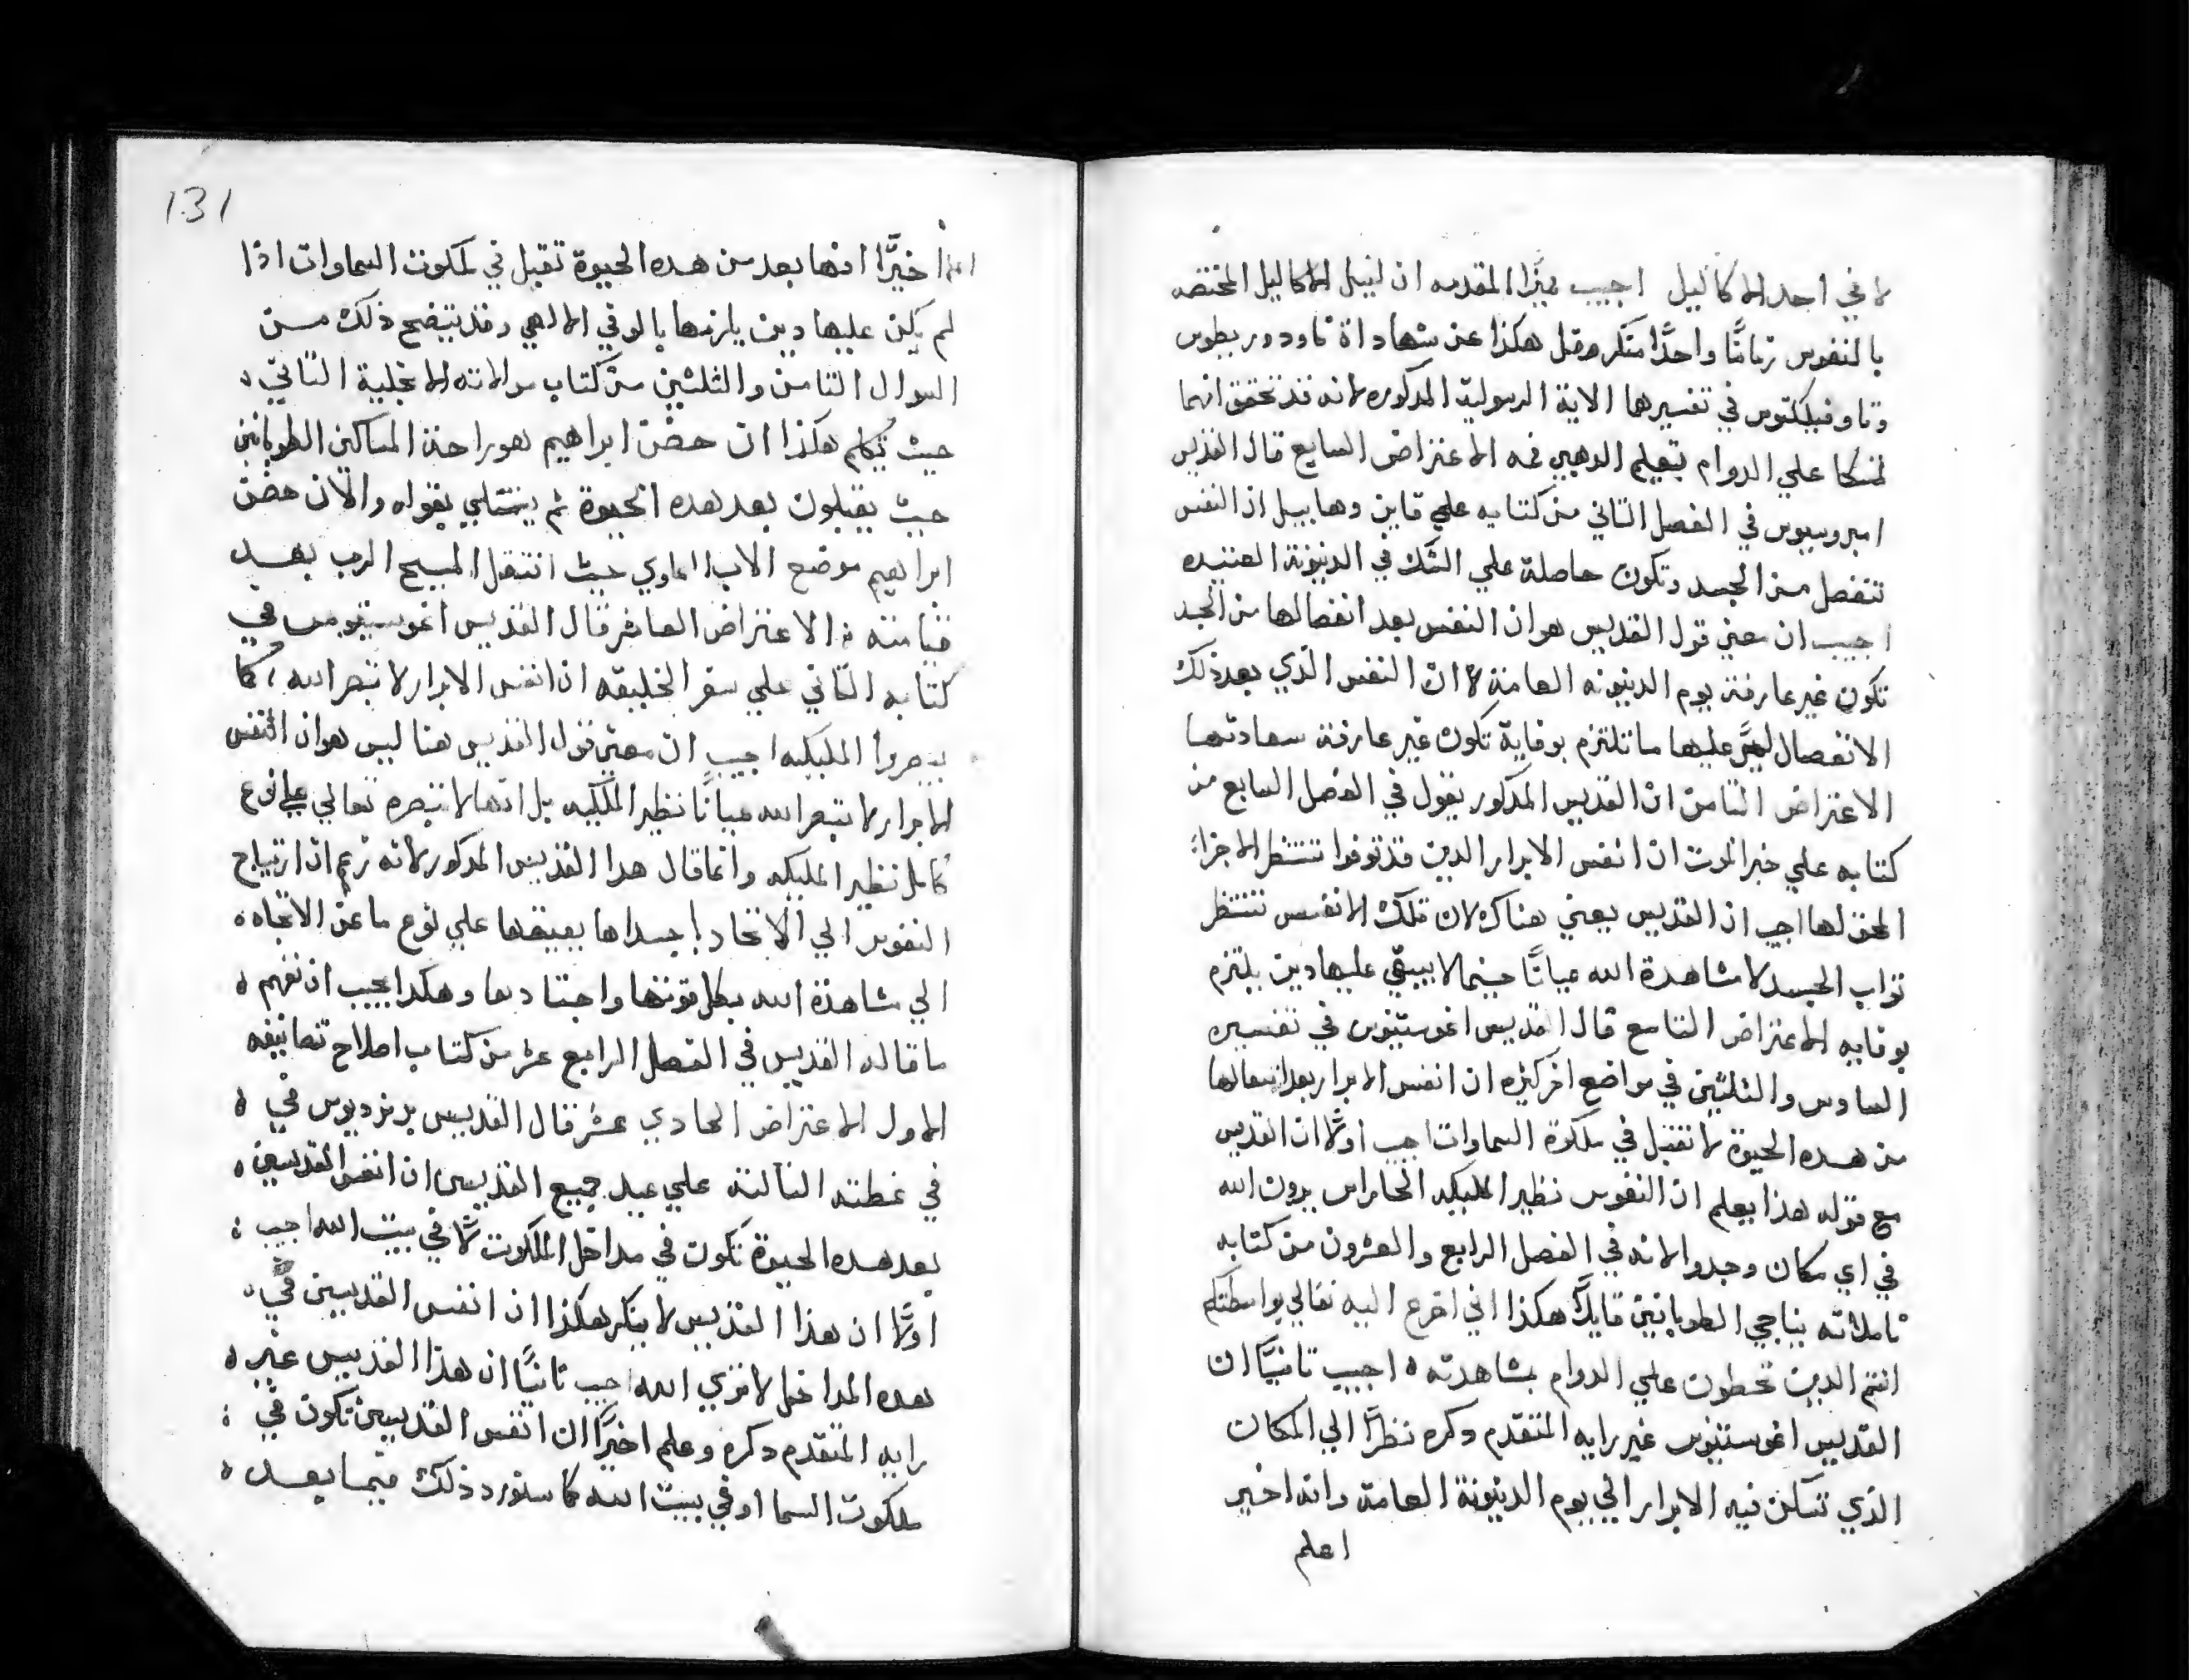 لا في احد الاكاليل اجيب مميزا المقدمه ان لنيل الاكاليل المختصه
بالنفوس زمانًا واحدًا منكر وقبل هكذا عن شهاداة تاودوريطوس
وتاوفيلكتوس في تفسيرها الاية الرسولية المدكوره لانه قد تحقق انهما
تمسكا علي الدوام بتعليم الدهبي فمه الاعتراض السابع قال القديس
امبروسيوس في الفصل التاني من كتابه علي قاين وهابيل ان النفس
تنفصل من الجسد وتكون حاصلة علي الشك في الدينونة العتيده
اجيب ان معني قول القديس هو ان النفس بعد انفصالها من الجسد
تكون غير عارفة يوم الدينونه العامة لا ان النفس الذي بعد ذلك
الانفصال ليس عليها ما تلتزم بوفاية تكون غير عارفة سعادتها
الاعتراض التامن ان القديس المدكور يقول في الفصل السابع من
كتابه علي خير الموت ان انفس الابرار الدين قد توفوا تنتظر الاجزاء
المحق لها اجيب ان القديس يعني هناك لان تلك الانفس تنتظر
تواب الجسد لا مشاهدة الله عيانًا حينما لا يبقي عليها دين يلتزم
بوفايه الاعتراض التاسع قال القديس اغوستينوس في تفسيره
السادس والثلثين في مواضع اخر كثيره ان انفس الابرار بعد انتقالها
من هده الحيوة لا تقبل في ملكوة السماوات اجيب اولًا ان القديس
مع قوله هذا يعلم ان النفوس نظير المليكه الحارس يرون الله
في اي مكان وجدوا لانه في الفصل الرابع والعشرون من كتابه
تاملاته يناجي الطوبانيين قايلًا هكذا اني اضرع اليه تعالي بواسطتكم
انتم الدين تحظون علي الدوام بمشاهدته ه اجيب تانيًا ان
القديس اغوستينوس غير رايه المتقدم دكره نظرًا الي المكان
الذي تسكن فيه الابرار الي يوم الدينونة العامة وانه اخير
اعلم
اخيرًا انها بعد من هده الحيوة تقبل في ملكوت السماوات اذا
لم يكن عليها دين يلزمها بالوفي الالهي وقد يتضح ذلك من
السوال التامن والثلثين من كتاب سوالاته الانجلية التاني
حيث تكلم هكذا ان حضن ابراهيم هو راحة المساكين الطوبانين
حيث يقبلون بعد هده الحيوة ثم يتتلي بقوله والان حضن
ابراهيم موضع الاب السماوي حيث انتقل المسيح الرب بعد
قيامته الاعتراض العاشر قال القديس اغوستينوس في
كتابه التاني علي سفر الخليقه ان انفس الابرار لا تبصر الله كما
يبصروا المليكه اجيب ان معني قول القديس هنا ليس هو ان انفس
الابرار لا تبصر الله عيانًا نظير المليكه بل انها لا تبصره تعالي علي نوع
كامل نظير المليكه وانما قال هدا القديس المدكور لانه زعم ان ارتياح
النفوس الي الاتحاد باجسداها يعيقها علي نوع ما عن الاتجاه
الي مشاهدة الله بكل قوتها واجتهادها وهكدا يجب ان نفهم ه
ما قاله القديس في الفصل الرابع عشر من كتاب اصلاح تصانيفه
الاول الاعتراض الحادي عشر قال القديس برنرديوس في ه
في عظته التالتة علي عيد جميع القديسين ان انفس القديسين ه
بعد هده الحيوة تكون في مداخل الملكوت لا في بيت الله اجيب
اولًا ان هذا القديس لا ينكر هكذا ان انفس القديسين في
هده المداخل لا تري الله اجيب تانيًا ان هذا القديس غير ه
رايه المتقدم دكره وعلم اخيرًا ان انفس القديسين تكون في
ملكوت السما او في بيت الله كما سنورد ذلك فيما بعد ه
131